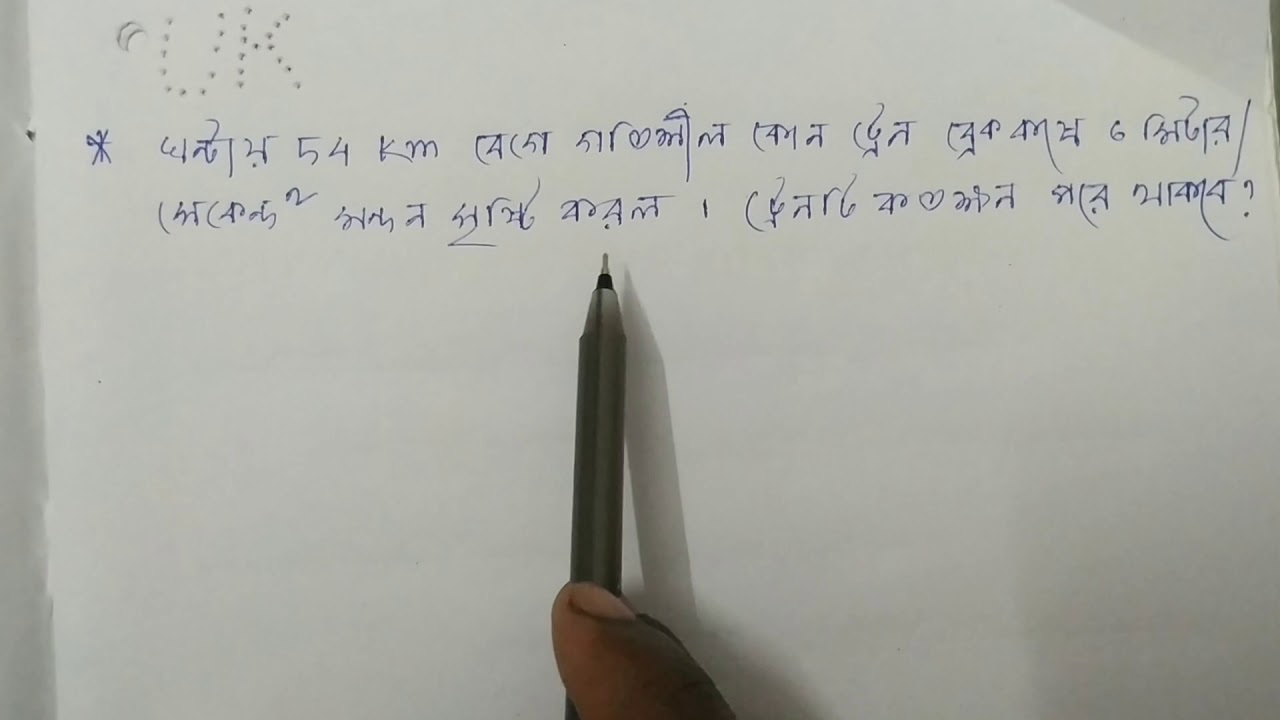 UK
* ঘন্টায় 54 Km বেগে গতিশীল কোন ট্রেন ব্রেক কষে ৩ মিটার/
সেকেন্ড² মন্দন সৃষ্টি করল । ট্রেনটি কতক্ষন পরে থাকবে?